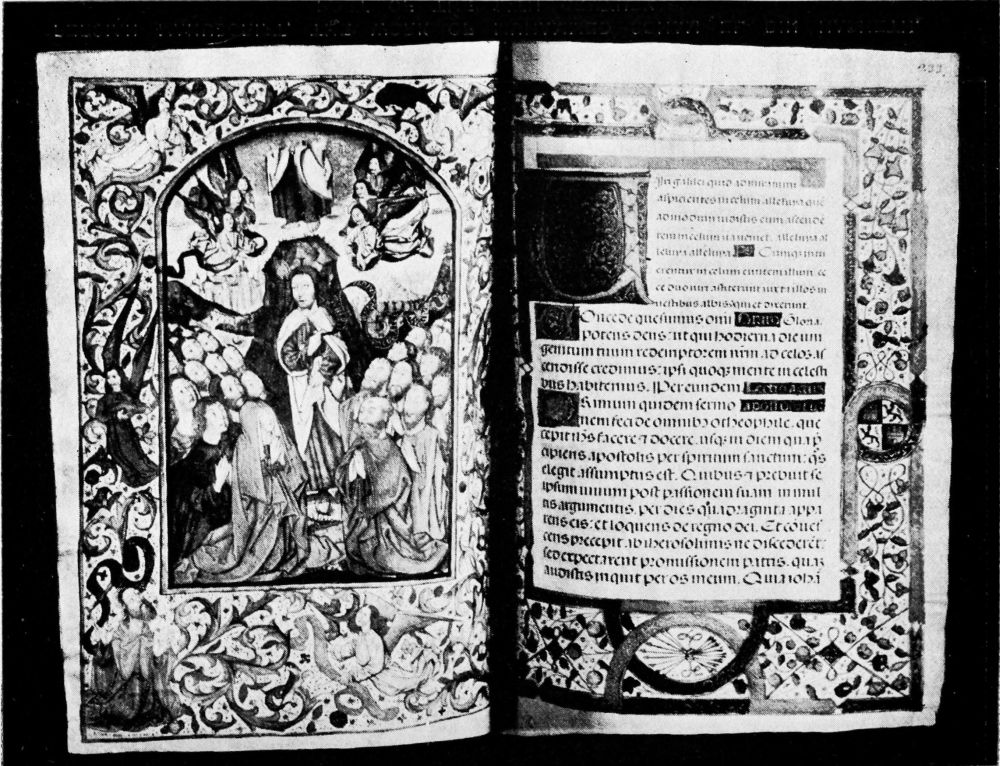 Viri galilei quid admiramini
aspicientes in celum alleluya que
admodum vidistis eum ascende
tem in celum ita veniet, alleluya al
leluya alleluya. Cumqz intu
erentur in celum euntem illum. ec
ce duo viri astiterunt iuxta illos in
vestibus albis: qui et dixerunt.
Concede quesumus omi Gloria.
potens deus: ut qui hodierna die uni
genitum tuum redemptorem nrm ad celos as
cendisse credimus: ipsi quoqz mente in celesti
bus habitemus. Per eundem
Primum quidem sermo
nem feci de omnibz o theophile. que
cepit ihs facere ⁊ docere. usqz in diem qua p
cipiens apostolis per spiritum sanctum: qs
elegit assumptus est. Quibus ⁊ prebuit se
ipsum vivum post passionem suam in mul
tis argumentis. per dies quadraginta appa
rens eis: et loquens de regno dei. Et convesˉ
cens precepit. ab iherosolimis ne discederet:
sed expectarent promissionem patris. quaz
audistis inquit per os meum. Quia ioha